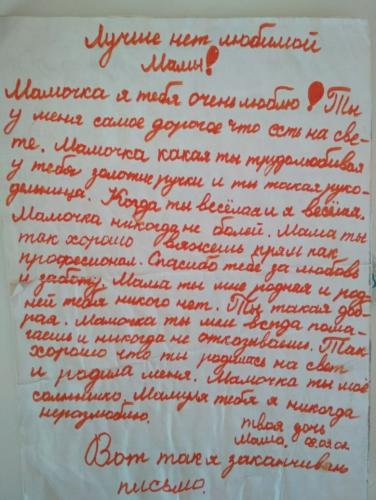 Лучше нет любимой
Мамы!
Мамочка я тебя очень люблю! Ты
у меня самое дорогое что есть на све-
те. Мамочка какая ты трудолюбивая
у тебя золотые ручки и ты такая руко-
дельница. Когда ты весёлая и я весёлая.
Мамочка никогда не болей. Мама ты
так хорошо вяжешь прям как
професионал. Спасибо тебе за любовь
и заботу. Мама ты мне родная и род-
ней тебя никого нет. Ты такая доб-
рая. Мамочка ты мне всегда пома-
гаешь и никогда не отказываешь. Так
хорошо что ты родилась на свет
и родила меня. Мамочка ты моё
солнышко. Мамуля тебя я никогда
неразлюблю.
твоя дочь
Мама. 08.03.02.
Вот так я заканчиваю
письмо.